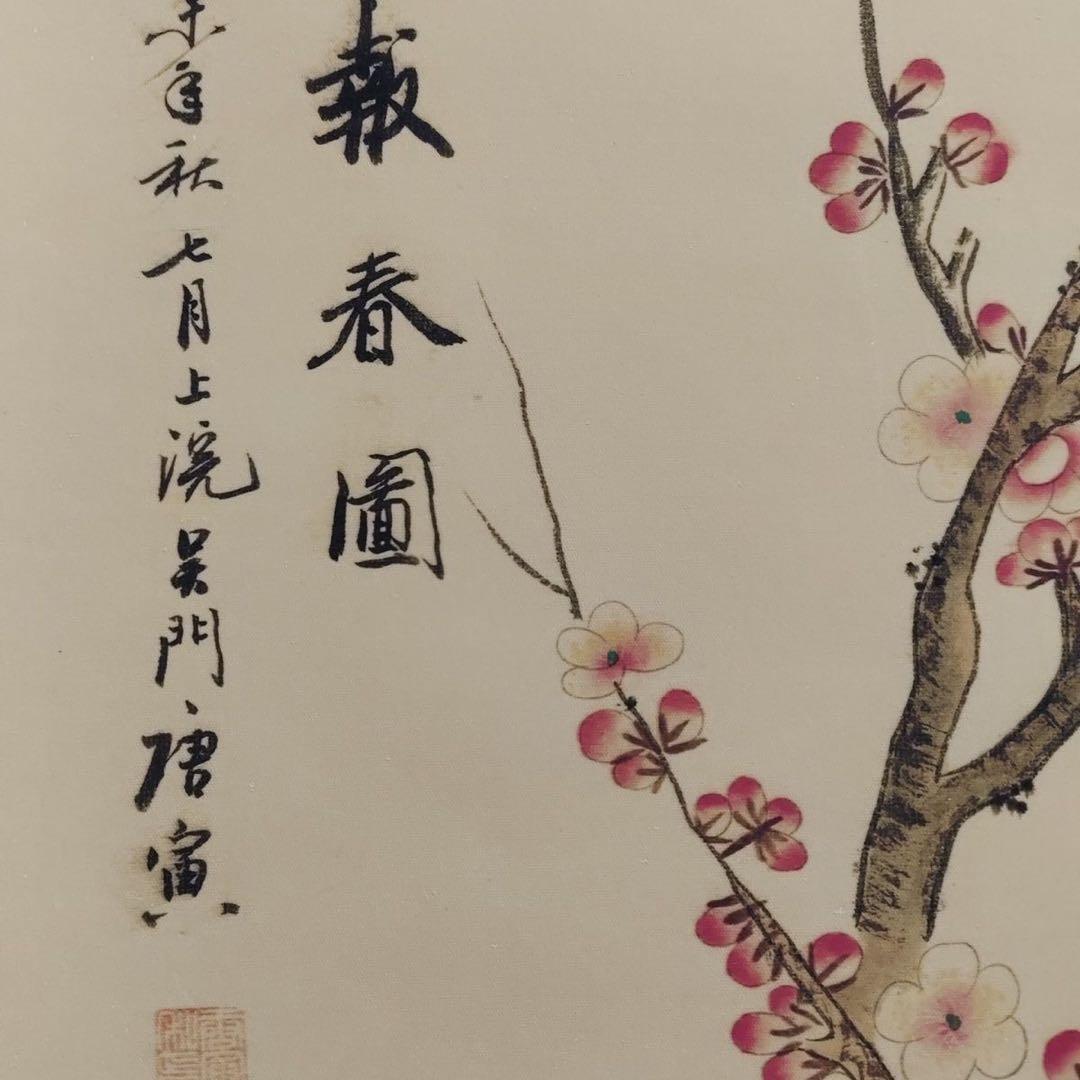 報春圖
未年秋七月上浣吳門唐寅